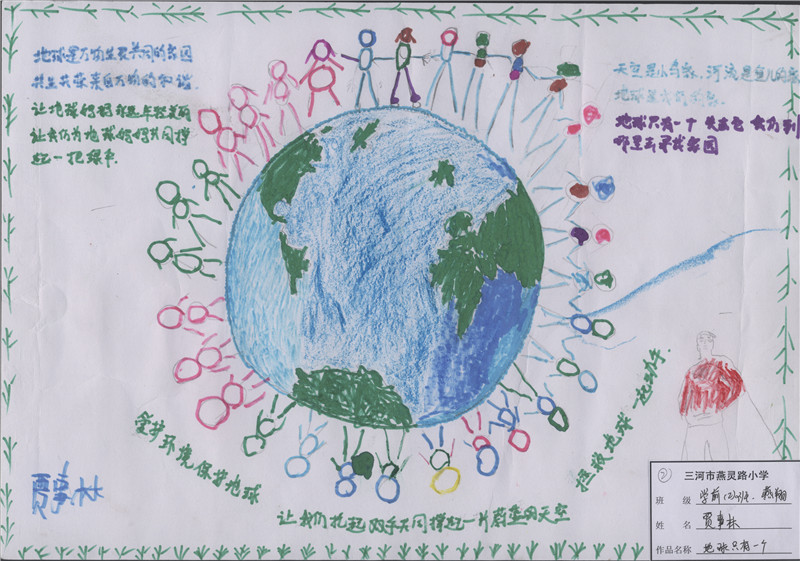 地球是万物生灵共同的家园
共生共荣来自万物的和谐.
让地球妈妈永远年轻美丽
让我们为地球妈妈共同撑
起一把绿伞.
天空是小鸟的家、河流是鱼儿的家
地球是我们的家.
地球只有一个 失去它 我们到
哪里去寻找家园
爱护环境 保护地球
让我们托起双手共同撑起一片蔚蓝的天空
拯救地球一起动手.
贾事林
② 三河市燕灵路小学
班 级 学前(2)班.
姓 名 贾事林
作品名称 地球只有一个